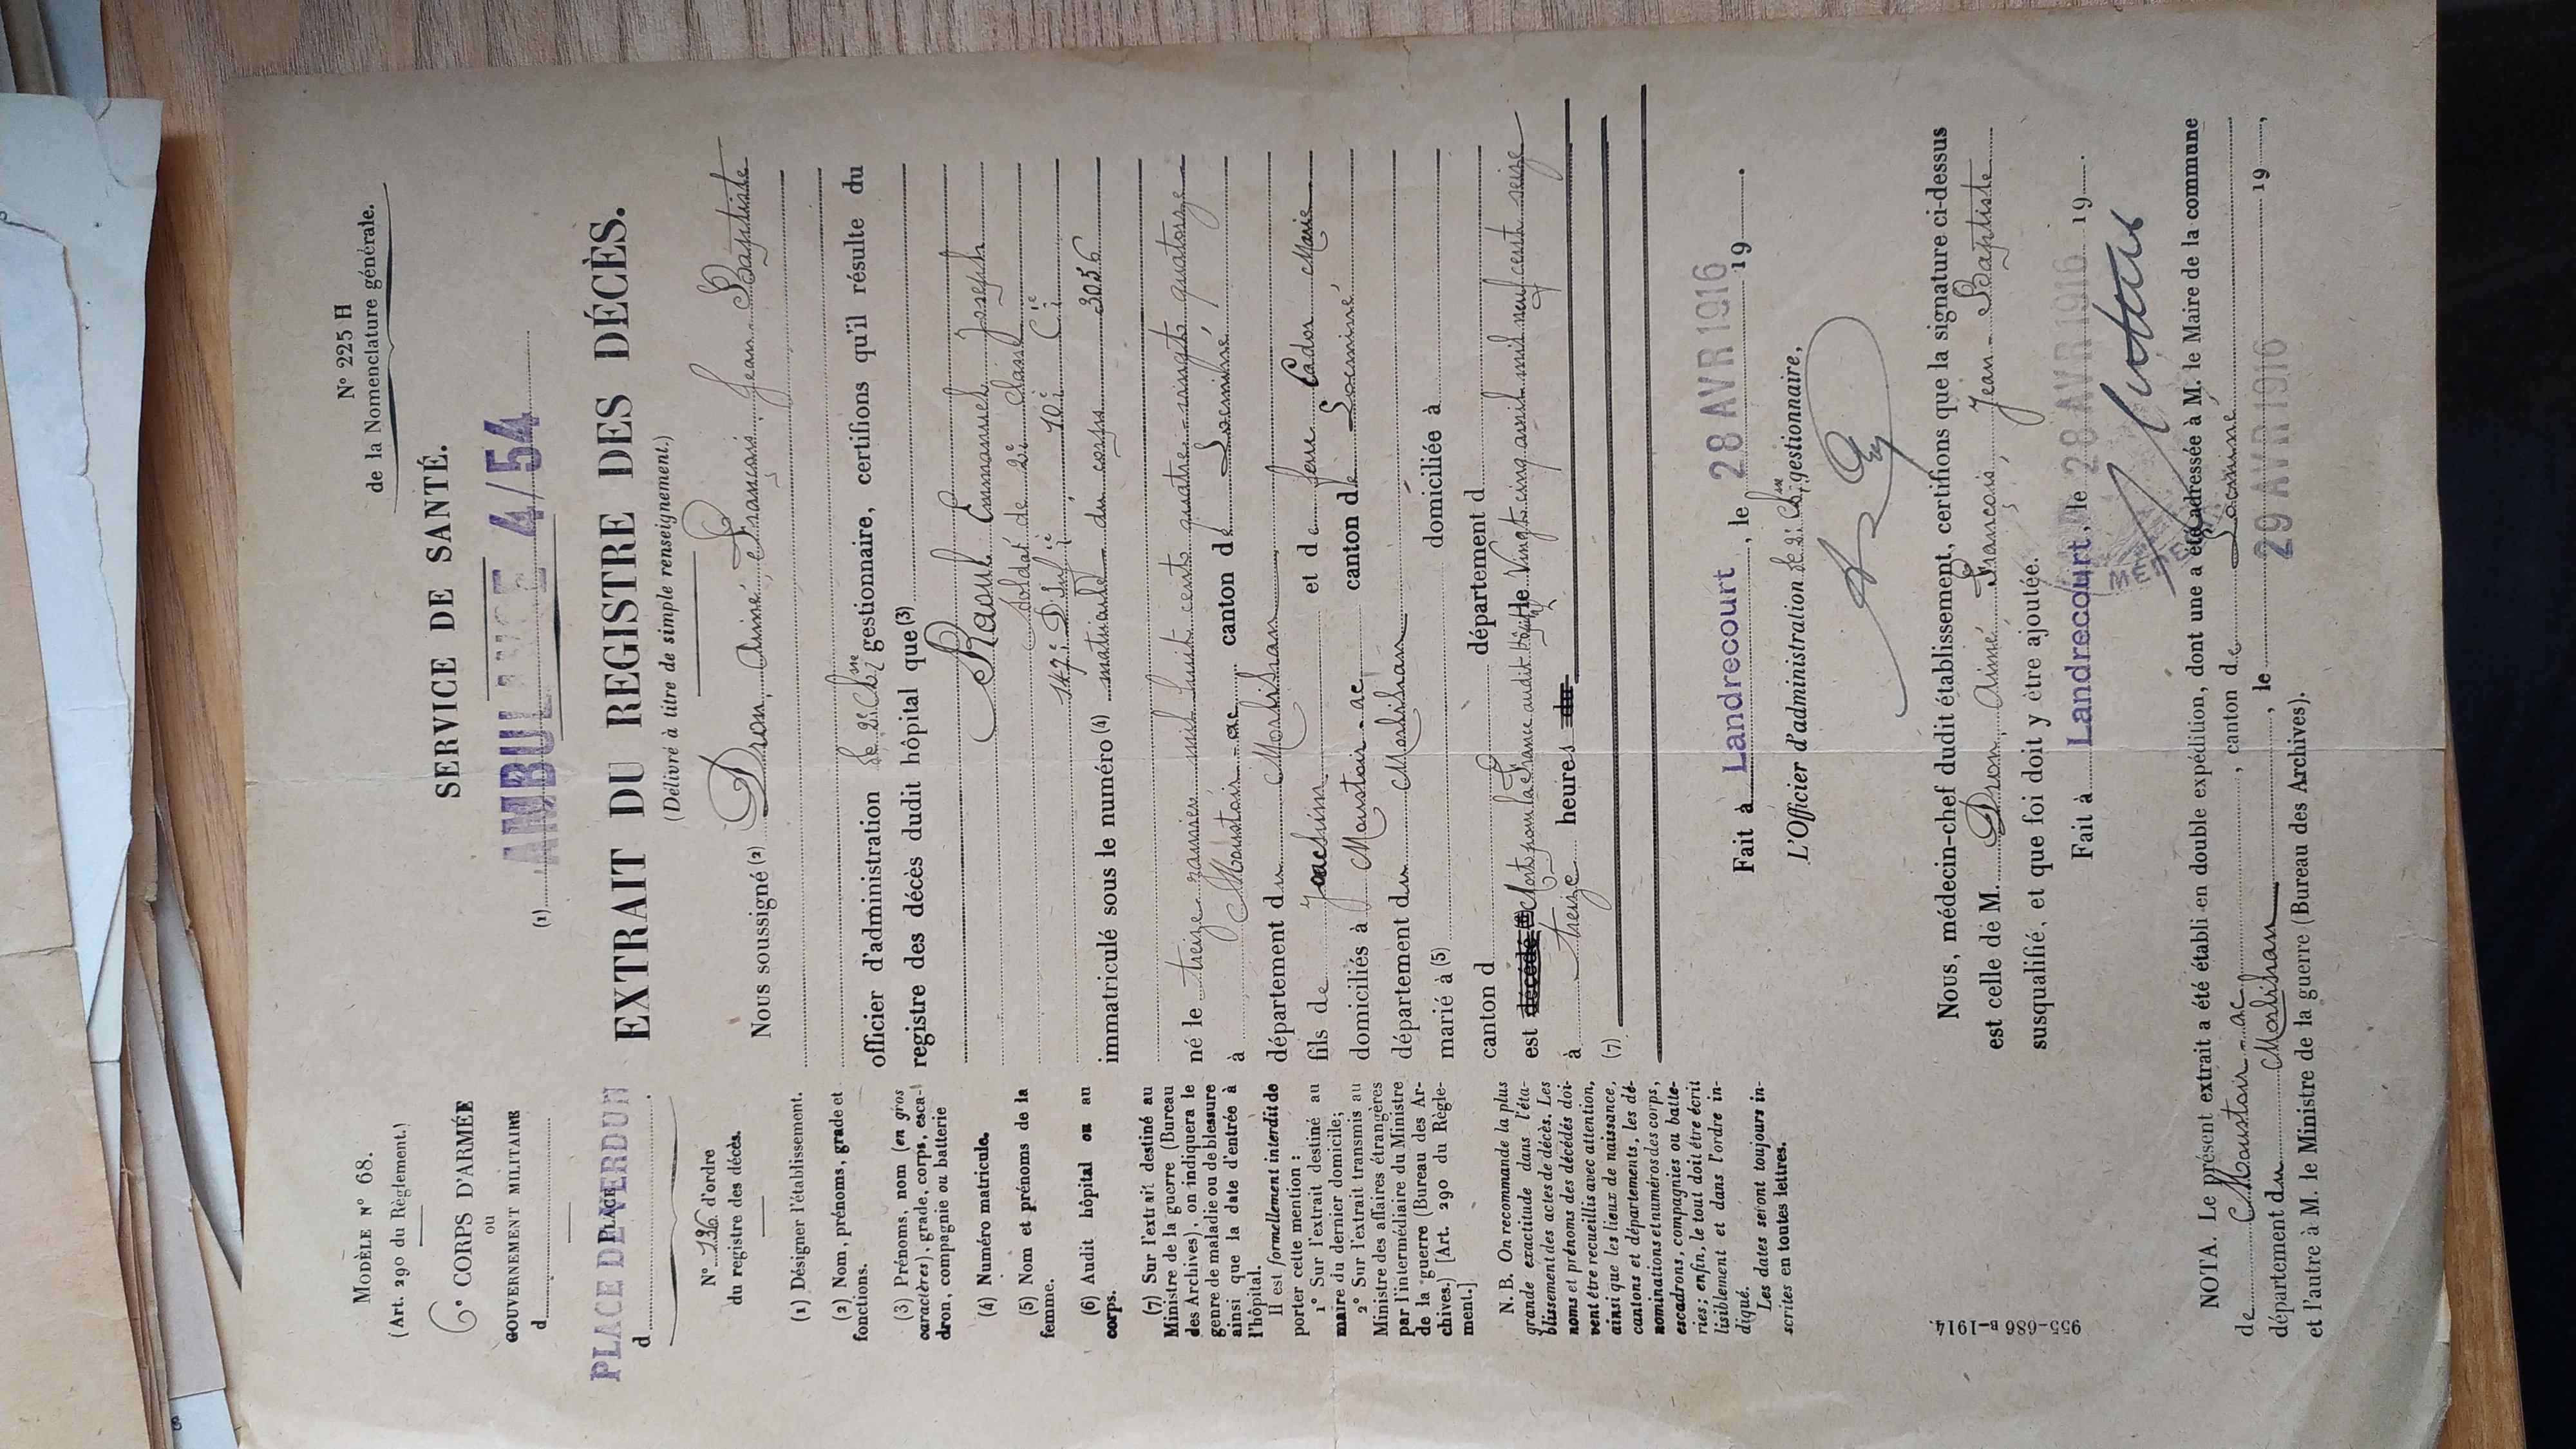 MODÈLE N° 68.
(Art. 290 du Règlement.)
6e CORPS D'ARMÉE
ou
GOUVERNEMENT MILITAIRE
d
PLACE
PLACE DE VERDUN
d
N° 136 d'ordre
du registre des décès.
(1) Désigner l'établissement.
(2) Nom, prénoms, grade et
fonctions.
(3) Prénoms, nom (en gros
caractères), grade, corps, esca-
dron, compagnie ou batterie
(4) Numéro matricule.
(5) Nom et prénoms de la
femme.
(6) Audit hôpital ou au
corps.
(7) Sur l'extrait destiné au
Ministre de la guerre (Bureau
des Archives), on indiquera le
genre de maladie ou de blessure
ainsi que la date d'entrée à
l'hôpital.
Il est formellement interdit de
porter cette mention :
1° Sur l'extrait destiné au
maire du dernier domicile;
2° Sur l'extrait transmis au
Ministre des affaires étrangères
par l'intermédiaire du Ministre
de la guerre (Bureau des Ar-
chives.) [Art. 290 du Règle-
ment.]
N. B. On recommande la plus
grande exactitude dans l'éta-
blissement des actes de décès. Les
noms et prénoms des décédés doi-
vent être recueillis avec attention,
ainsi que les lieux de naissance,
cantons et départements, les dé-
nominations et numéros des corps,
escadrons, compagnies ou batte-
ries; enfin, le tout doit être écrit
lisiblement et dans l'ordre in-
diqué.
Les dates seront toujours in-
scrites en toutes lettres.
955-686 B-1914.
N° 225 H
de la Nomenclature générale.
SERVICE DE SANTÉ.
(1) AMBULANCE 4/54
EXTRAIT DU REGISTRE DES DÉCÈS.
(Délivré à titre de simple renseignement.)
Nous soussigné (2) Dron, Aimé, François, Jean-Baptiste
officier d'administration de 2e Classe gestionnaire, certifions qu'il résulte du
registre des décès dudit hôpital que (3)
Raoul Emmanuel Joseph
soldat de 2e classe
147e D'Infie, 10e Cie
immatriculé sous le numéro (4) matricule du corps 3056
né le treize janvier mil huit cent quatre-vingt quatorze
à Moustoir-ac canton de Locminé
département du Morbihan
fils de Joachim et de feue Cador Marie
domiciliés à Moustoir-ac canton de Locminé
département du Morbihan
marié à (5) domiciliée à
canton d département d
est décédé (6) Mort pour la France audit Hôpital le Vingt cinq avril mil neuf cent seize
à treize heures du
(7)
Fait à Landrecourt, le 28 AVR 1916 19 .
L'Officier d'administration de 2e Classe gestionnaire,
Nous, médecin-chef dudit établissement, certifions que la signature ci-dessus
est celle de M. Dron, Aimé, François, Jean-Baptiste
susqualifié, et que foi doit y être ajoutée.
Fait à Landrecourt, le 28 AVR 1916 19 .
NOTA. Le présent extrait a été établi en double expédition, dont une a été adressée à M. le Maire de la commune
de Moustoir-ac, canton de Locminé
département du Morbihan, le 29 AVR 1916 19 ,
et l'autre à M. le Ministre de la guerre (Bureau des Archives).